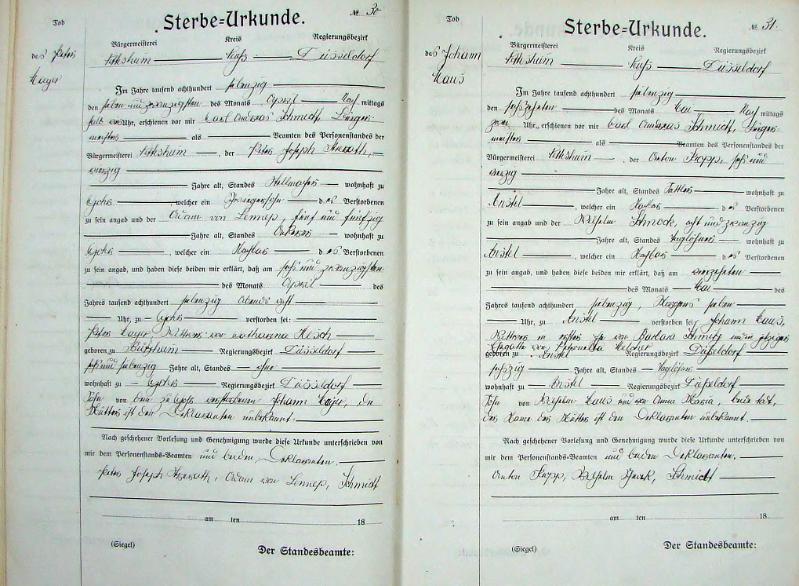 Tod
des Peter
Mayer
№ 30
Sterbe-Urkunde.
Bürgermeisterei Kreis Regierungsbezirk
Düsseldorf
Im Jahre tausend achthundert siebenzig
den sieben und zwanzigsten des Monats April Nachmittags
Uhr, erschienen vor mir Carl Schmidt, Bürger-
meister als Beamten des Personenstandes der
Bürgermeisterei , der Peter Joseph
vierzig
Jahre alt, Standes wohnhaft zu
, welcher ein d es Verstorbenen
zu sein angab und der Adam von Lennep, fünf und fünfzig
Jahre alt, Standes Ackerer wohnhaft zu
, welcher ein Nachbar d es Verstorbenen
zu sein angab, und haben diese beiden mir erklärt, daß am sechs und zwanzigsten
des Monats April des
Jahres tausend achthundert siebenzig Abends acht
Uhr, zu verstorben sei:
Peter Mayer, Wittwer von Katharina
geboren zu Regierungsbezirk Düsseldorf
sechs und siebenzig Jahre alt, Standes ohne
wohnhaft zu Regierungsbezirk Düsseldorf
Sohn von verstorbenen Johann Mayer, der
Mutter ist den Deklaranten unbekannt.
Nach geschehener Vorlesung und Genehmigung wurde diese Urkunde unterschrieben von
mir dem Personenstands-Beamten und beiden Deklaranten.
Peter Joseph , Adam von Lennep, Schmidt
am ten 18
(Siegel) Der Standesbeamte:
Tod
des Johann
Maus
№ 31.
Sterbe-Urkunde.
Bürgermeisterei Kreis Regierungsbezirk
Düsseldorf
Im Jahre tausend achthundert siebenzig
den sechszehnten des Monats Mai Nachmittags
Uhr, erschienen vor mir Carl Schmidt, Bürger-
meister als Beamten des Personenstandes der
Bürgermeisterei , der Anton sechs und
vierzig
Jahre alt, Standes Sattler wohnhaft zu
Anstel , welcher ein Nachbar d es Verstorbenen
zu sein angab und der Wilhelm , acht und zwanzig
Jahre alt, Standes Taglöhner wohnhaft zu
Anstel , welcher ein Nachbar d es Verstorbenen
zu sein angab, und haben diese beiden mir erklärt, daß am vierzehnten
des Monats Mai des
Jahres tausend achthundert siebenzig, Morgens sieben
Uhr, zu Anstel verstorben sei: Johann Maus,
Wittwer in erster Ehe von Barbara Schmitz und in jetziger
von Petronella
geboren zu Anstel Regierungsbezirk Düsseldorf
sechszig Jahre alt, Standes Taglöhner
wohnhaft zu Anstel Regierungsbezirk Düsseldorf
Sohn von Wilhelm Maus und von Anna Maria, beide todt,
der Name der Mutter ist den Deklaranten unbekannt.
Nach geschehener Vorlesung und Genehmigung wurde diese Urkunde unterschrieben von
mir dem Personenstands-Beamten und beiden Deklaranten.
Anton , Wilhelm , Schmidt
am ten 18
(Siegel) Der Standesbeamte: